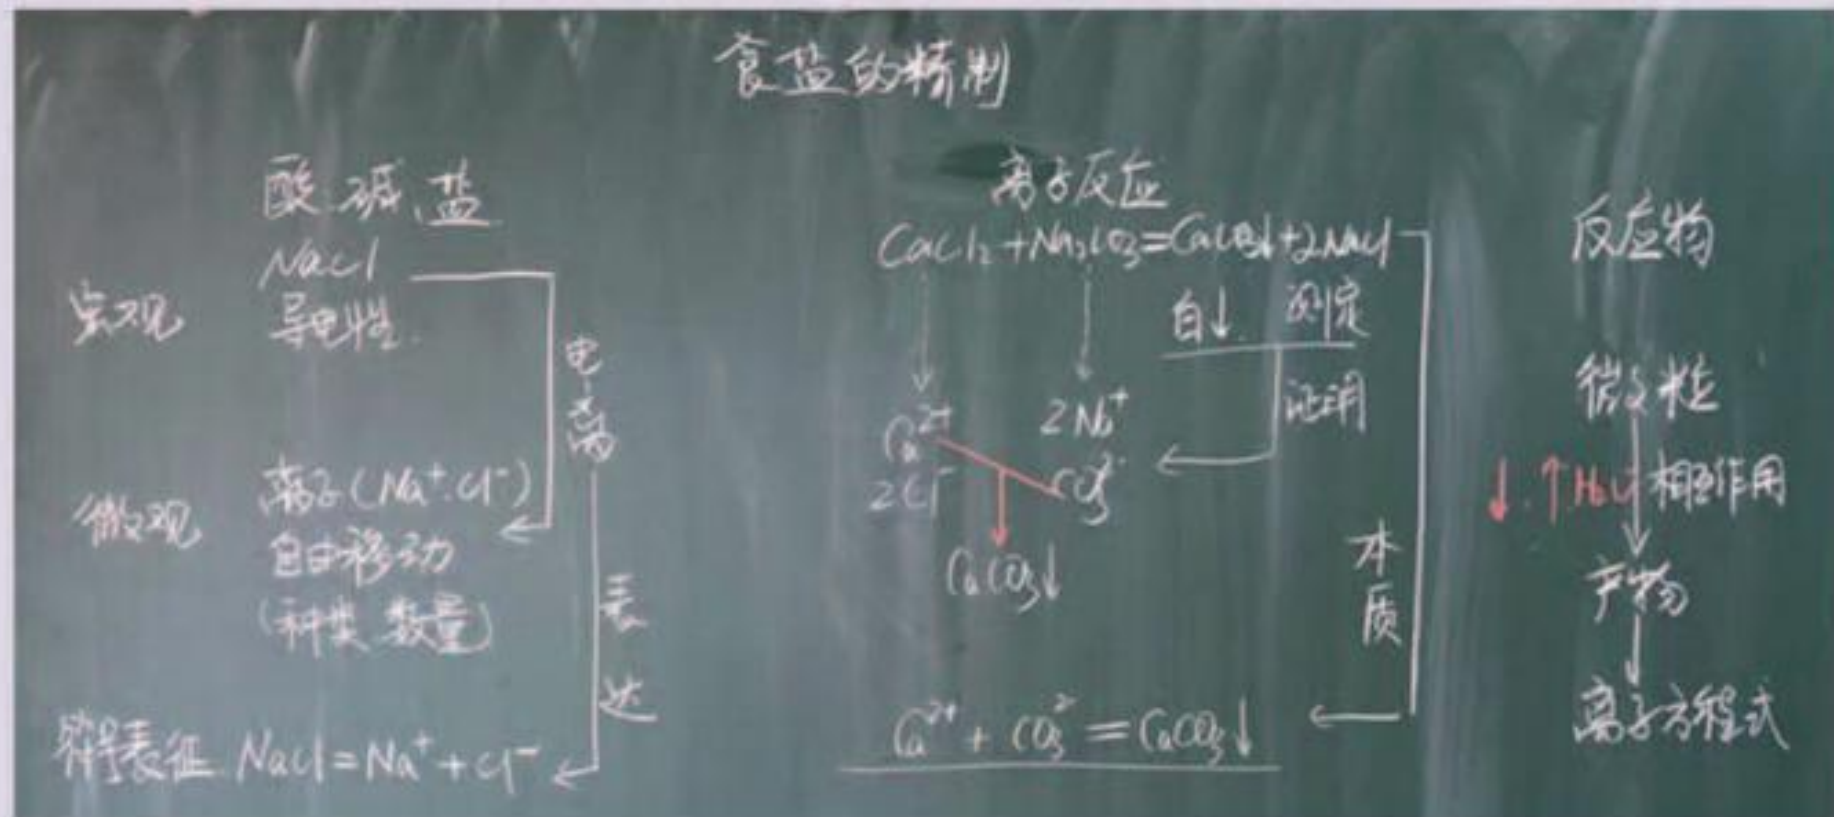 食盐的精制
酸.碱.盐
NaCl
导电性.
宏观
电离
微观
离子(Na⁺.Cl⁻)
自由移动
(种类.数量)
表达
符号表征 NaCl=Na⁺+Cl⁻
离子反应
CaCl₂+Na₂CO₃=CaCO₃↓+2NaCl
白↓. 测定
证明
Ca²⁺ 2Na⁺
2Cl⁻ CO₃²⁻
CaCO₃↓
本质
Ca²⁺+CO₃²⁻=CaCO₃↓
反应物
微粒
↓.↑ 相互作用
产物
离子方程式